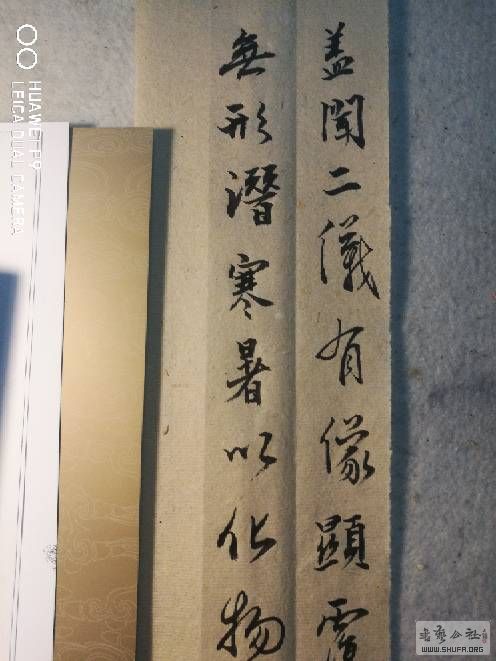 盖闻二儀有像顯覆
無形潛寒暑以化物
HUAWEI P9
LEICA DUAL CAMERA
書藝公社
WWW.SHUFA.ORG